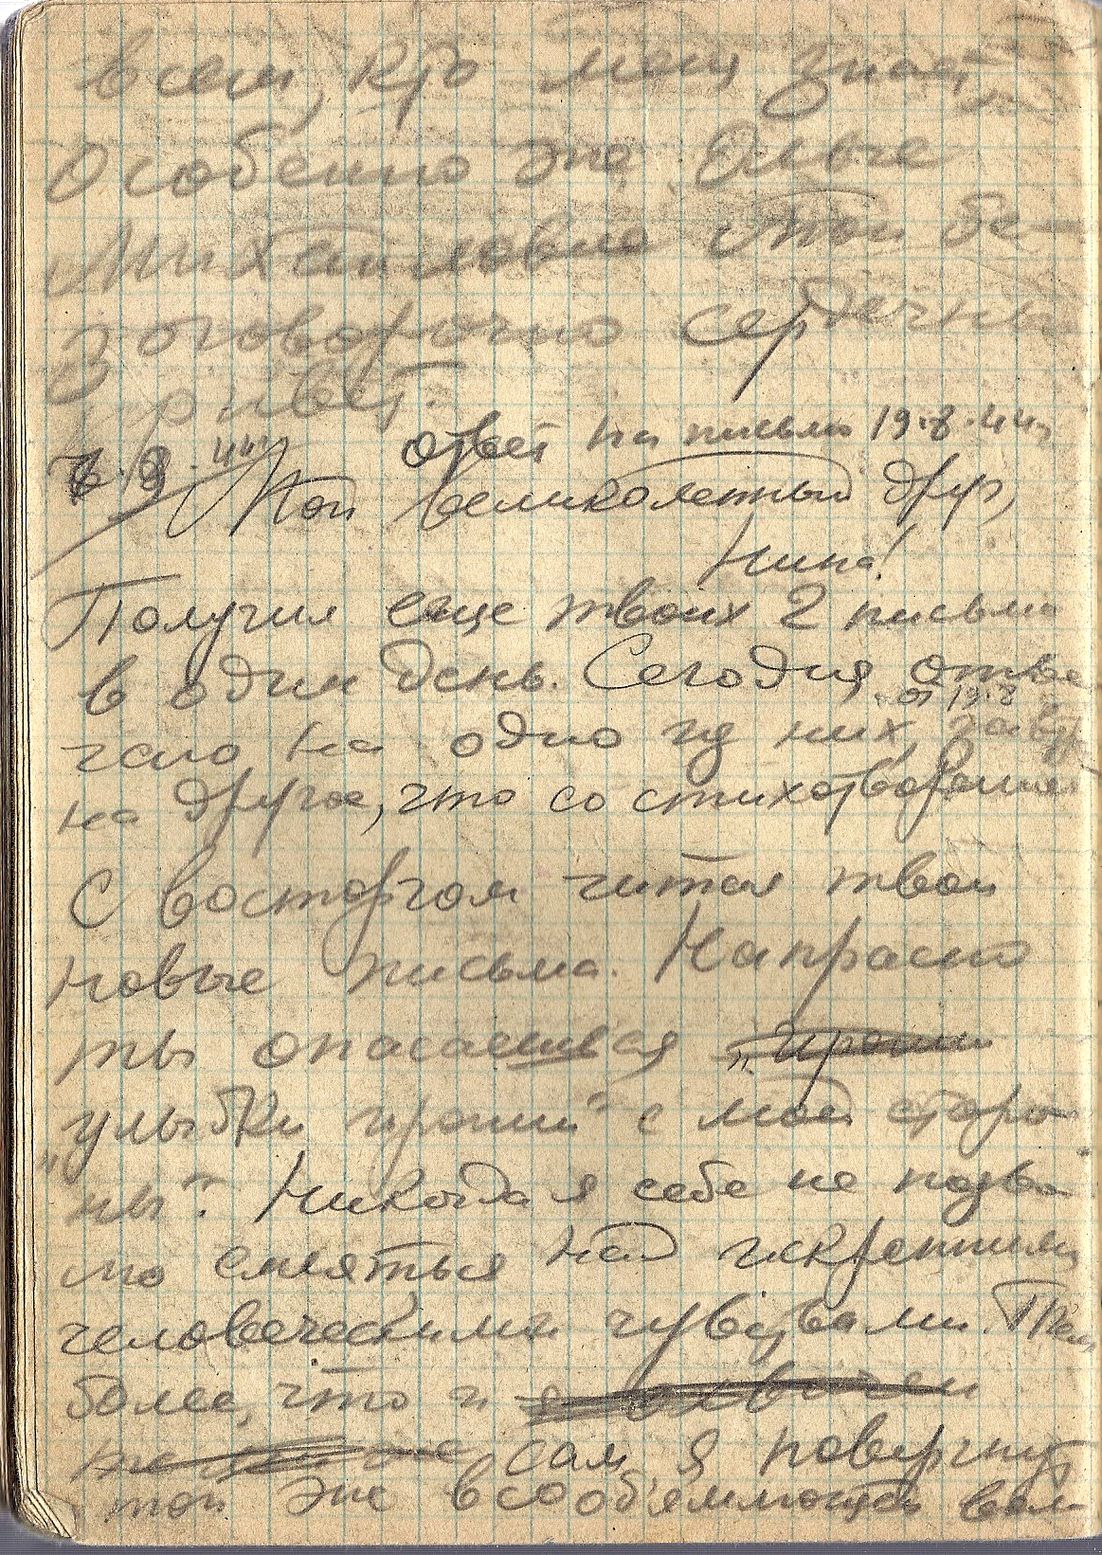 всем, кто меня знает,
Особенно же Ольге
Михайловне
заговорочно сердечный
привет.
9.44 Ответ на письмо 19.8.44г
Мой великолепный друг,
Нина!
Получил еще твоих 2 письма
в один день. Сегодня отве
чаю на одно из них, от 19.8 завтра
на другое, что со стихотворением
С восторгом читал твои
новые письма. Напрасно
ты опасаешься „иронии
„улыбки иронии" с моей сторо
ны". Никогда я себе не позво
лю смеяться над искренними
человеческими чувствами. Тем
более, что и
сам я повергнут
той же всеобъемлющей